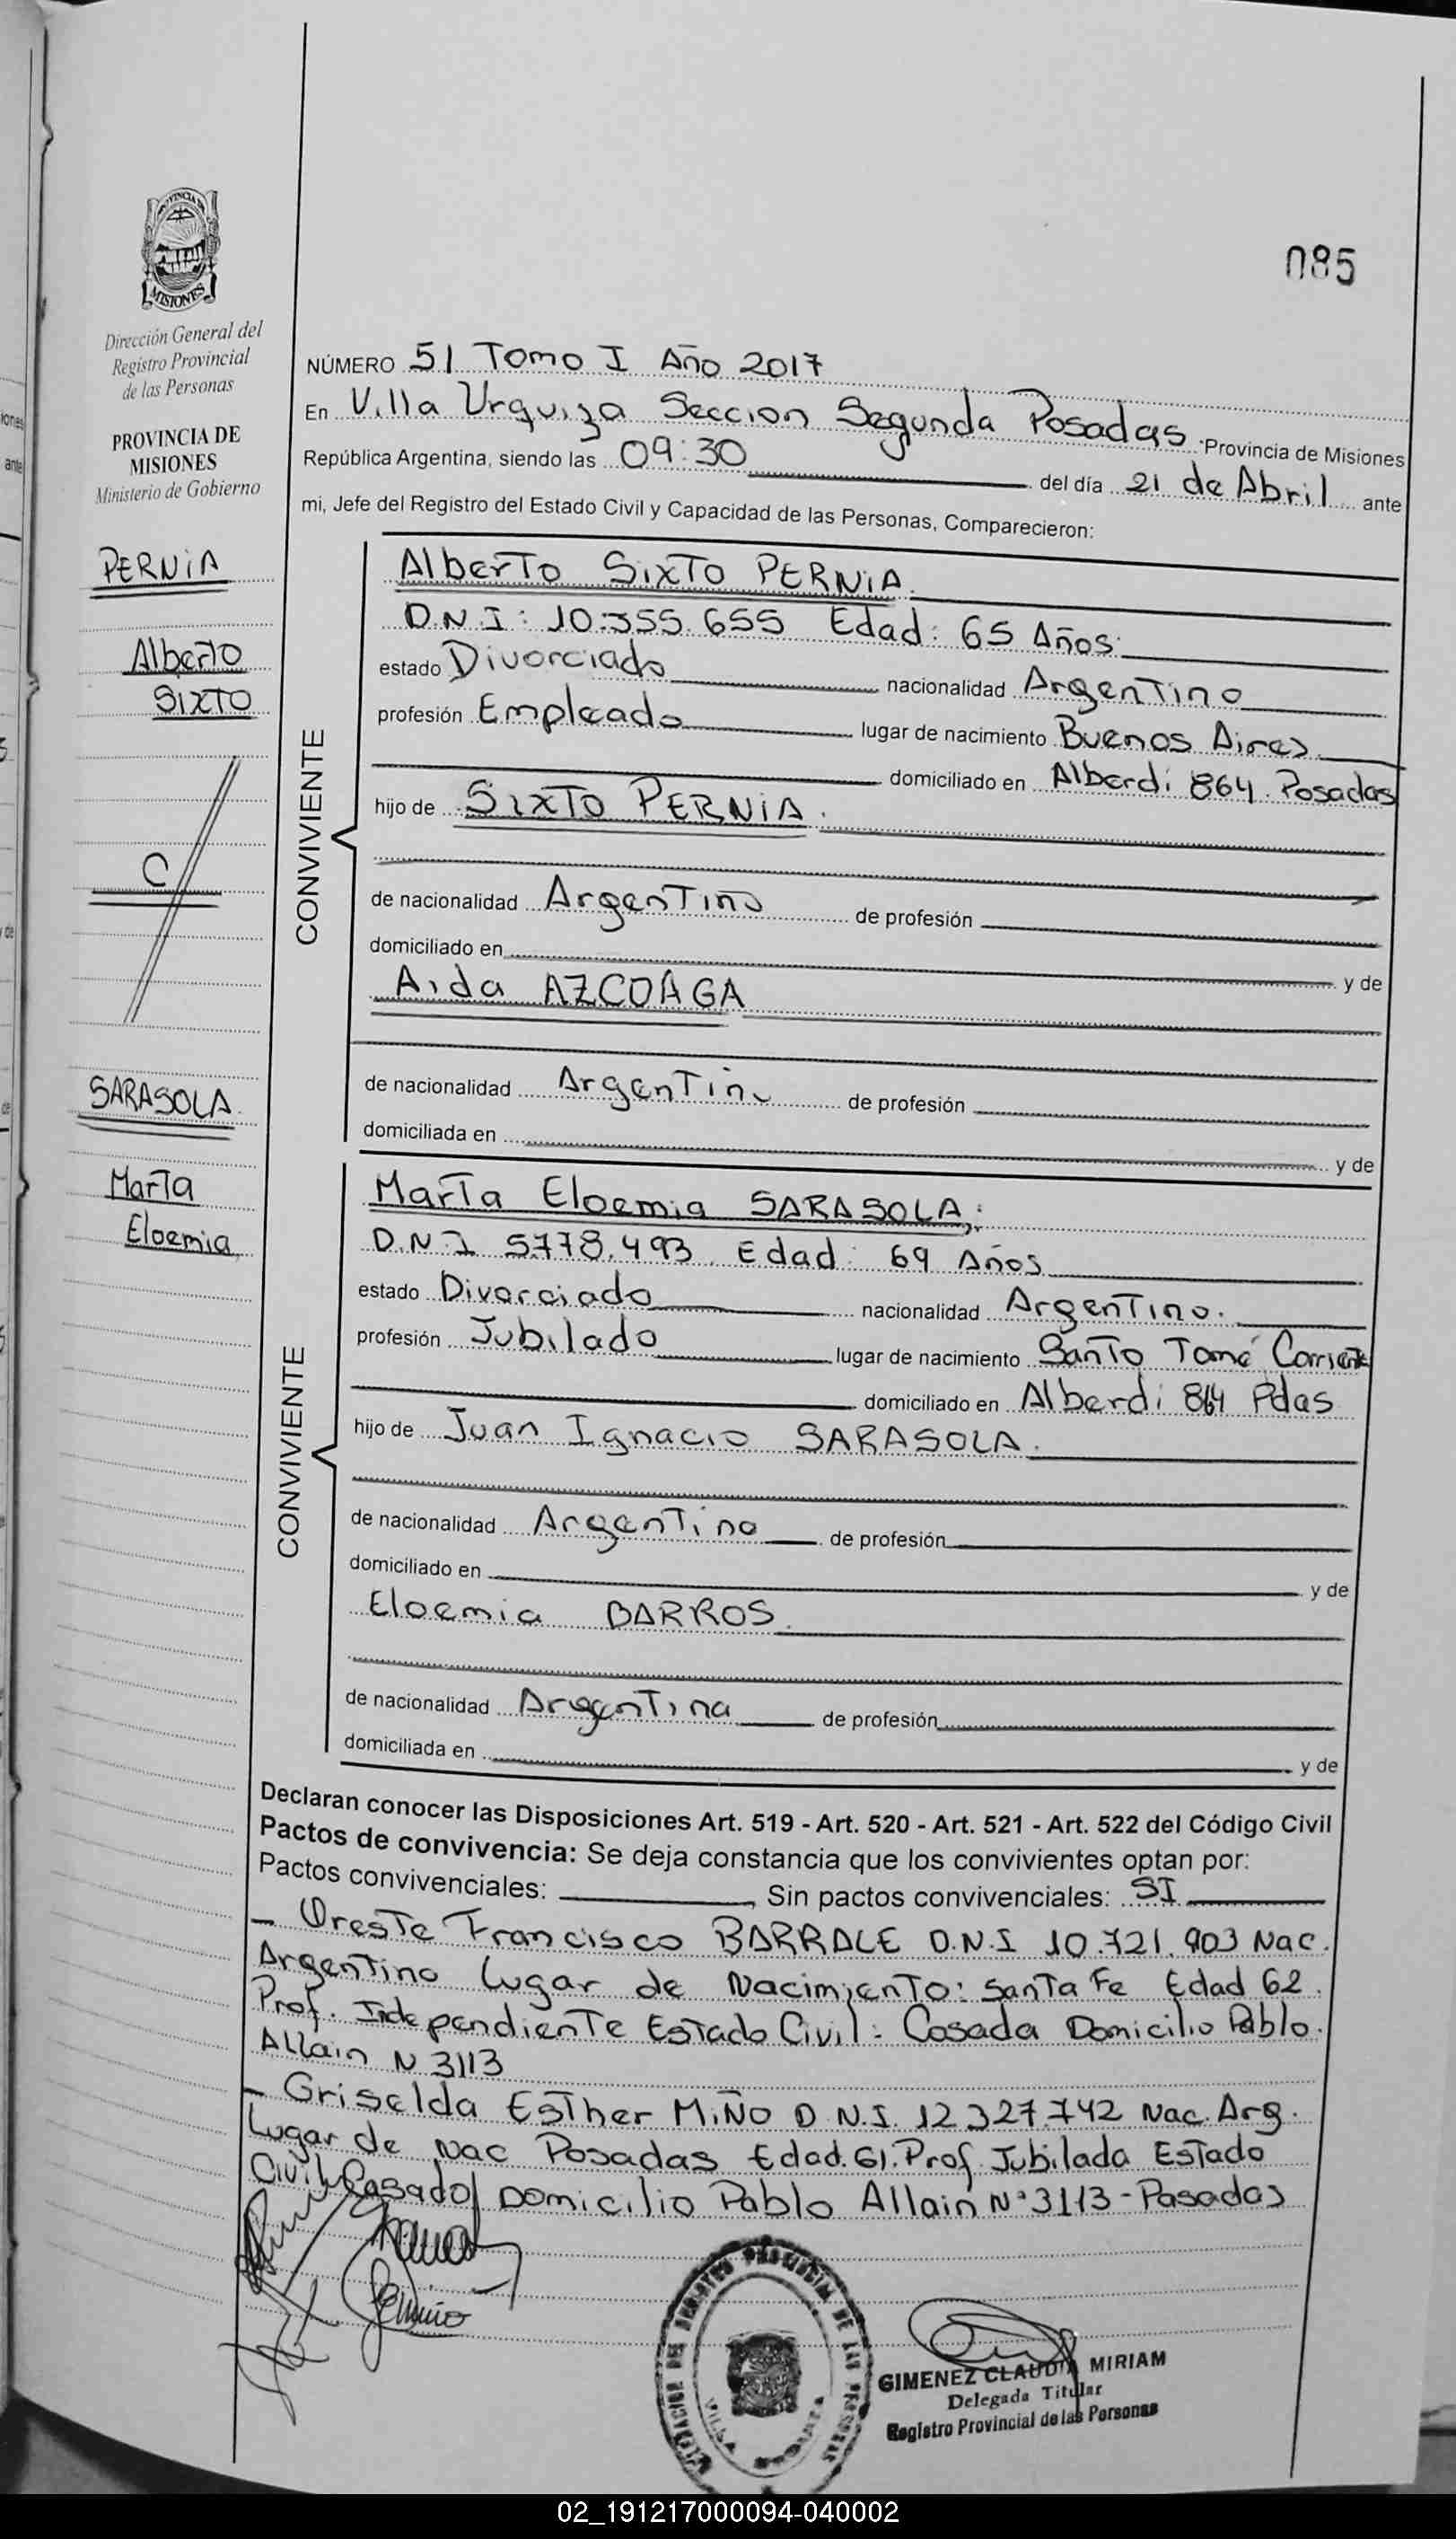 PROVINCIA DE
MISIONES
Dirección General del
Registro Provincial
de las Personas
PROVINCIA DE
MISIONES
Ministerio de Gobierno
PERNIA
Alberto
SIXTO
C
SARASOLA
Marta
Eloemia
085
NÚMERO 51 Tomo I Año 2017
En Villa Urquiza Seccion Segunda Posadas Provincia de Misiones
República Argentina, siendo las 09:30 del día 21 de Abril ante
mi, Jefe del Registro del Estado Civil y Capacidad de las Personas, Comparecieron:
CONVIVIENTE
Alberto Sixto PERNIA
D.N.I: 10.355.655 Edad: 65 Años
estado Divorciado nacionalidad Argentino
profesión Empleado lugar de nacimiento Buenos Aires
domiciliado en Alberdi 864 Posadas
hijo de Sixto PERNIA
de nacionalidad Argentino de profesión
domiciliado en y de
Aida AZCOAGA
de nacionalidad Argentin de profesión
domiciliada en y de
CONVIVIENTE
Marta Eloemia SARASOLA
D.N.I 5.778.493 Edad: 69 Años
estado Divorciado nacionalidad Argentino.
profesión Jubilado lugar de nacimiento Santo Tomé Corriente
domiciliado en Alberdi 864 Pdas
hijo de Juan Ignacio SARASOLA.
de nacionalidad Argentino de profesión
domiciliado en y de
Eloemia BARROS
de nacionalidad Argentina de profesión
domiciliada en y de
Declaran conocer las Disposiciones Art. 519 - Art. 520 - Art. 521 - Art. 522 del Código Civil
Pactos de convivencia: Se deja constancia que los convivientes optan por:
Pactos convivenciales: , Sin pactos convivenciales: SI
- Oreste Francisco BARRALE D.N.I 10.721.903 Nac.
Argentino Lugar de Nacimiento: Santa Fe Edad 62
Prof. Independiente Estado Civil: Casada Domicilio Pablo
Allain N 3113
- Griselda Esther MIÑO D.N.I. 12.327.742 Nac. Arg.
Lugar de Nac Posadas Edad. 61. Prof Jubilada Estado
Civil Casado Domicilio Pablo Allain N° 3113 - Posadas
GIMENEZ CLAUDIA MIRIAM
Delegada Titular
Registro Provincial de las Personas
02_191217000094-040002